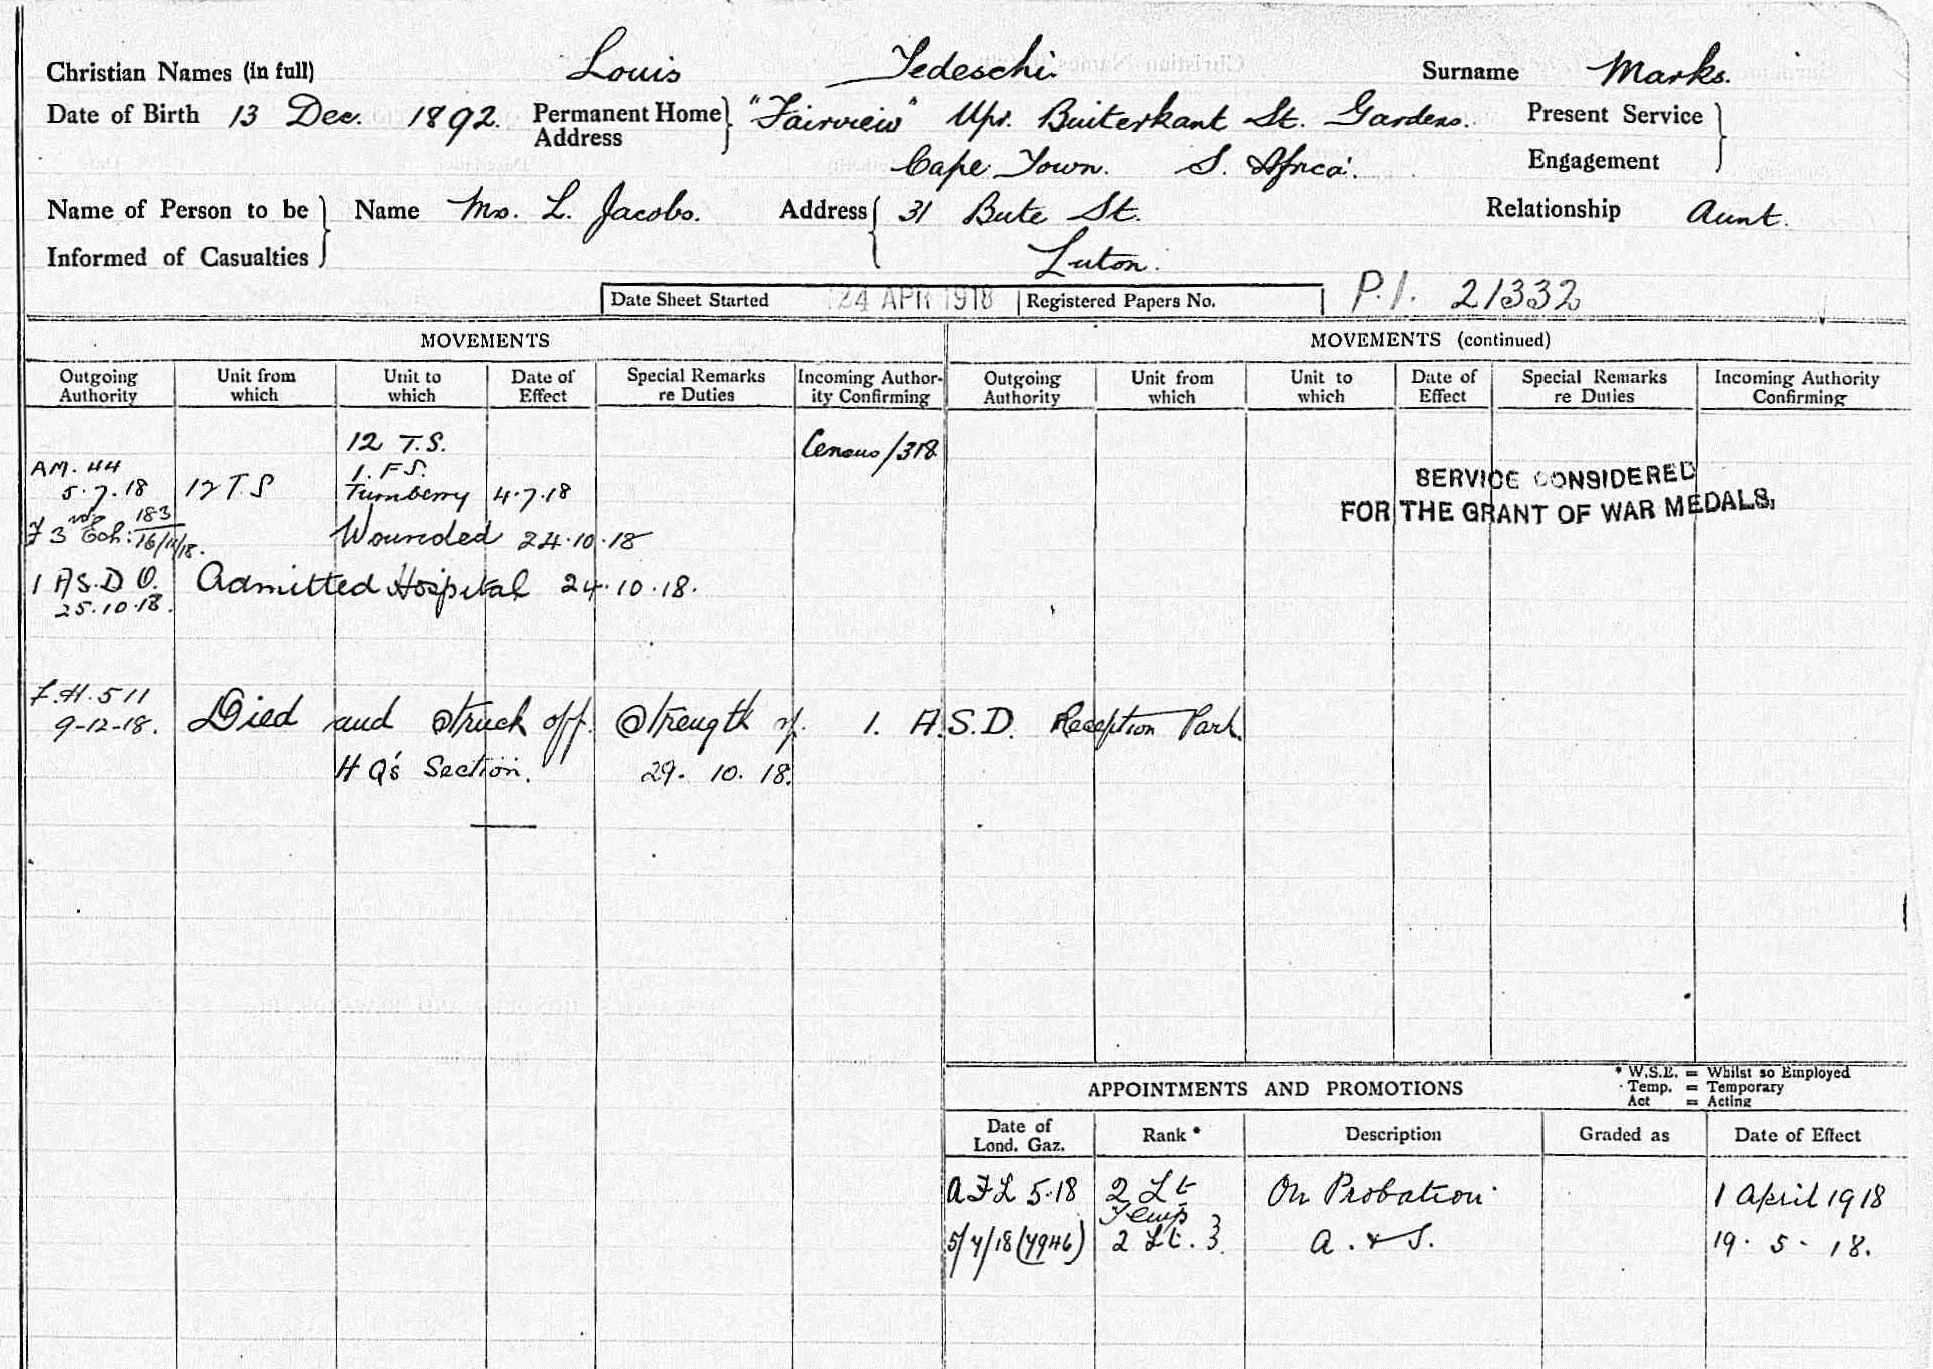 Christian Names (in full) Louis Tedeschi Surname Marks.
Date of Birth 13 Dec. 1892. Permanent Home Address "Fairview" Upr. Buitenkant St. Gardens. Present Service Engagement
Cape Town. S. Africa.
Name of Person to be Informed of Casualties Name Mrs. L. Jacobs. Address 31 Bute St. Relationship Aunt.
Luton.
Date Sheet Started 24 APR 1918 Registered Papers No. P.I. 21332
MOVEMENTS MOVEMENTS (continued)
Outgoing Authority Unit from which Unit to which Date of Effect Special Remarks re Duties Incoming Authority Confirming Outgoing Authority Unit from which Unit to which Date of Effect Special Remarks re Duties Incoming Authority Confirming
12 T.S. Census/318
AM. 44 1. F.S.
5.7.18 12 T S Turnberry 4.7.18
SERVICE CONSIDERED
FOR THE GRANT OF WAR MEDALS.
3 Ech: 183
16/11/18. Wounded 24.10.18
1 A S.D O. Admitted Hospital 24.10.18.
25.10.18.
F.H. 511
9-12-18. Died and struck off strength of 1. A.S.D. Reception Park.
H Q's Section. 29. 10. 18.
APPOINTMENTS AND PROMOTIONS
* W.S.E. = Whilst so Employed
Temp. = Temporary
Act = Acting
Date of Lond. Gaz. Rank * Description Graded as Date of Effect
A F L 5.18 2 Lt On Probation 1 April 1918
Temp
5/7/18 (7946) 2 Lt. A. & S. 19. 5. 18.